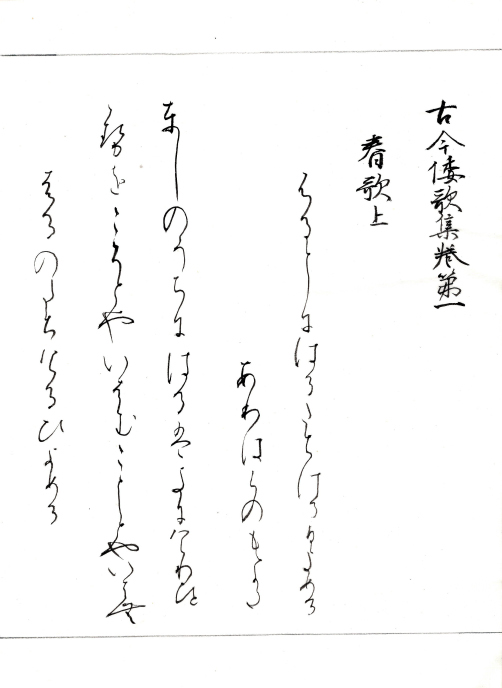 古今倭歌集巻第一
春歌上
ふるとしにはるたちける日よめる
ありはらのもとかた
としのうちにはるはきにけりひと
とせをこそとやいはむことしとやいはむ
はるのたちけるひよめる